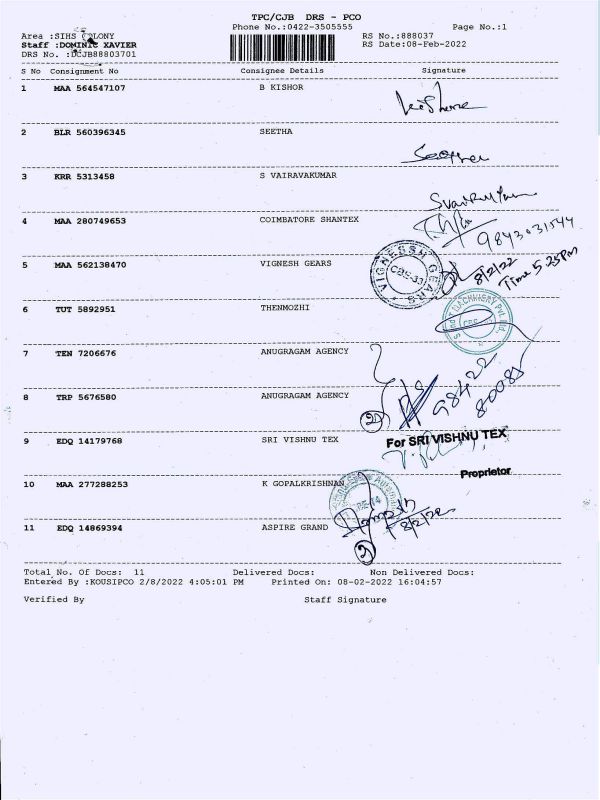 TPC/CJB DRS - PCO
Phone No.:0422-3505555 Page No.:1
Area :SIHS COLONY RS No.:888037
Staff :DOMINIC XAVIER RS Date:08-Feb-2022
DRS No. :DCJB88803701
S No Consignment No Consignee Details Signature
1 MAA 564547107 B KISHOR
2 BLR 560396345 SEETHA
Seetha
3 KRR 5313458 S VAIRAVAKUMAR
4 MAA 280749653 COIMBATORE SHANTEX
9843031544
5 MAA 562138470 VIGNESH GEARS
VIGNEESH GEARS
CBE-33
8/2/22
Time 5.25PM
6 TUT 5892951 THENMOZHI
7 TEN 7206676 ANUGRAGAM AGENCY
8 TRP 5676580 ANUGRAGAM AGENCY
2
98422
80085
9 EDQ 14179768 SRI VISHNU TEX
For SRI VISHNU TEX
Proprietor
10 MAA 277288253 K GOPALKRISHNAN
11 EDQ 14869394 ASPIRE GRAND
8/2/22
2
Total No. Of Docs: 11 Delivered Docs: Non Delivered Docs:
Entered By :KOUSIPCO 2/8/2022 4:05:01 PM Printed On: 08-02-2022 16:04:57
Verified By Staff Signature